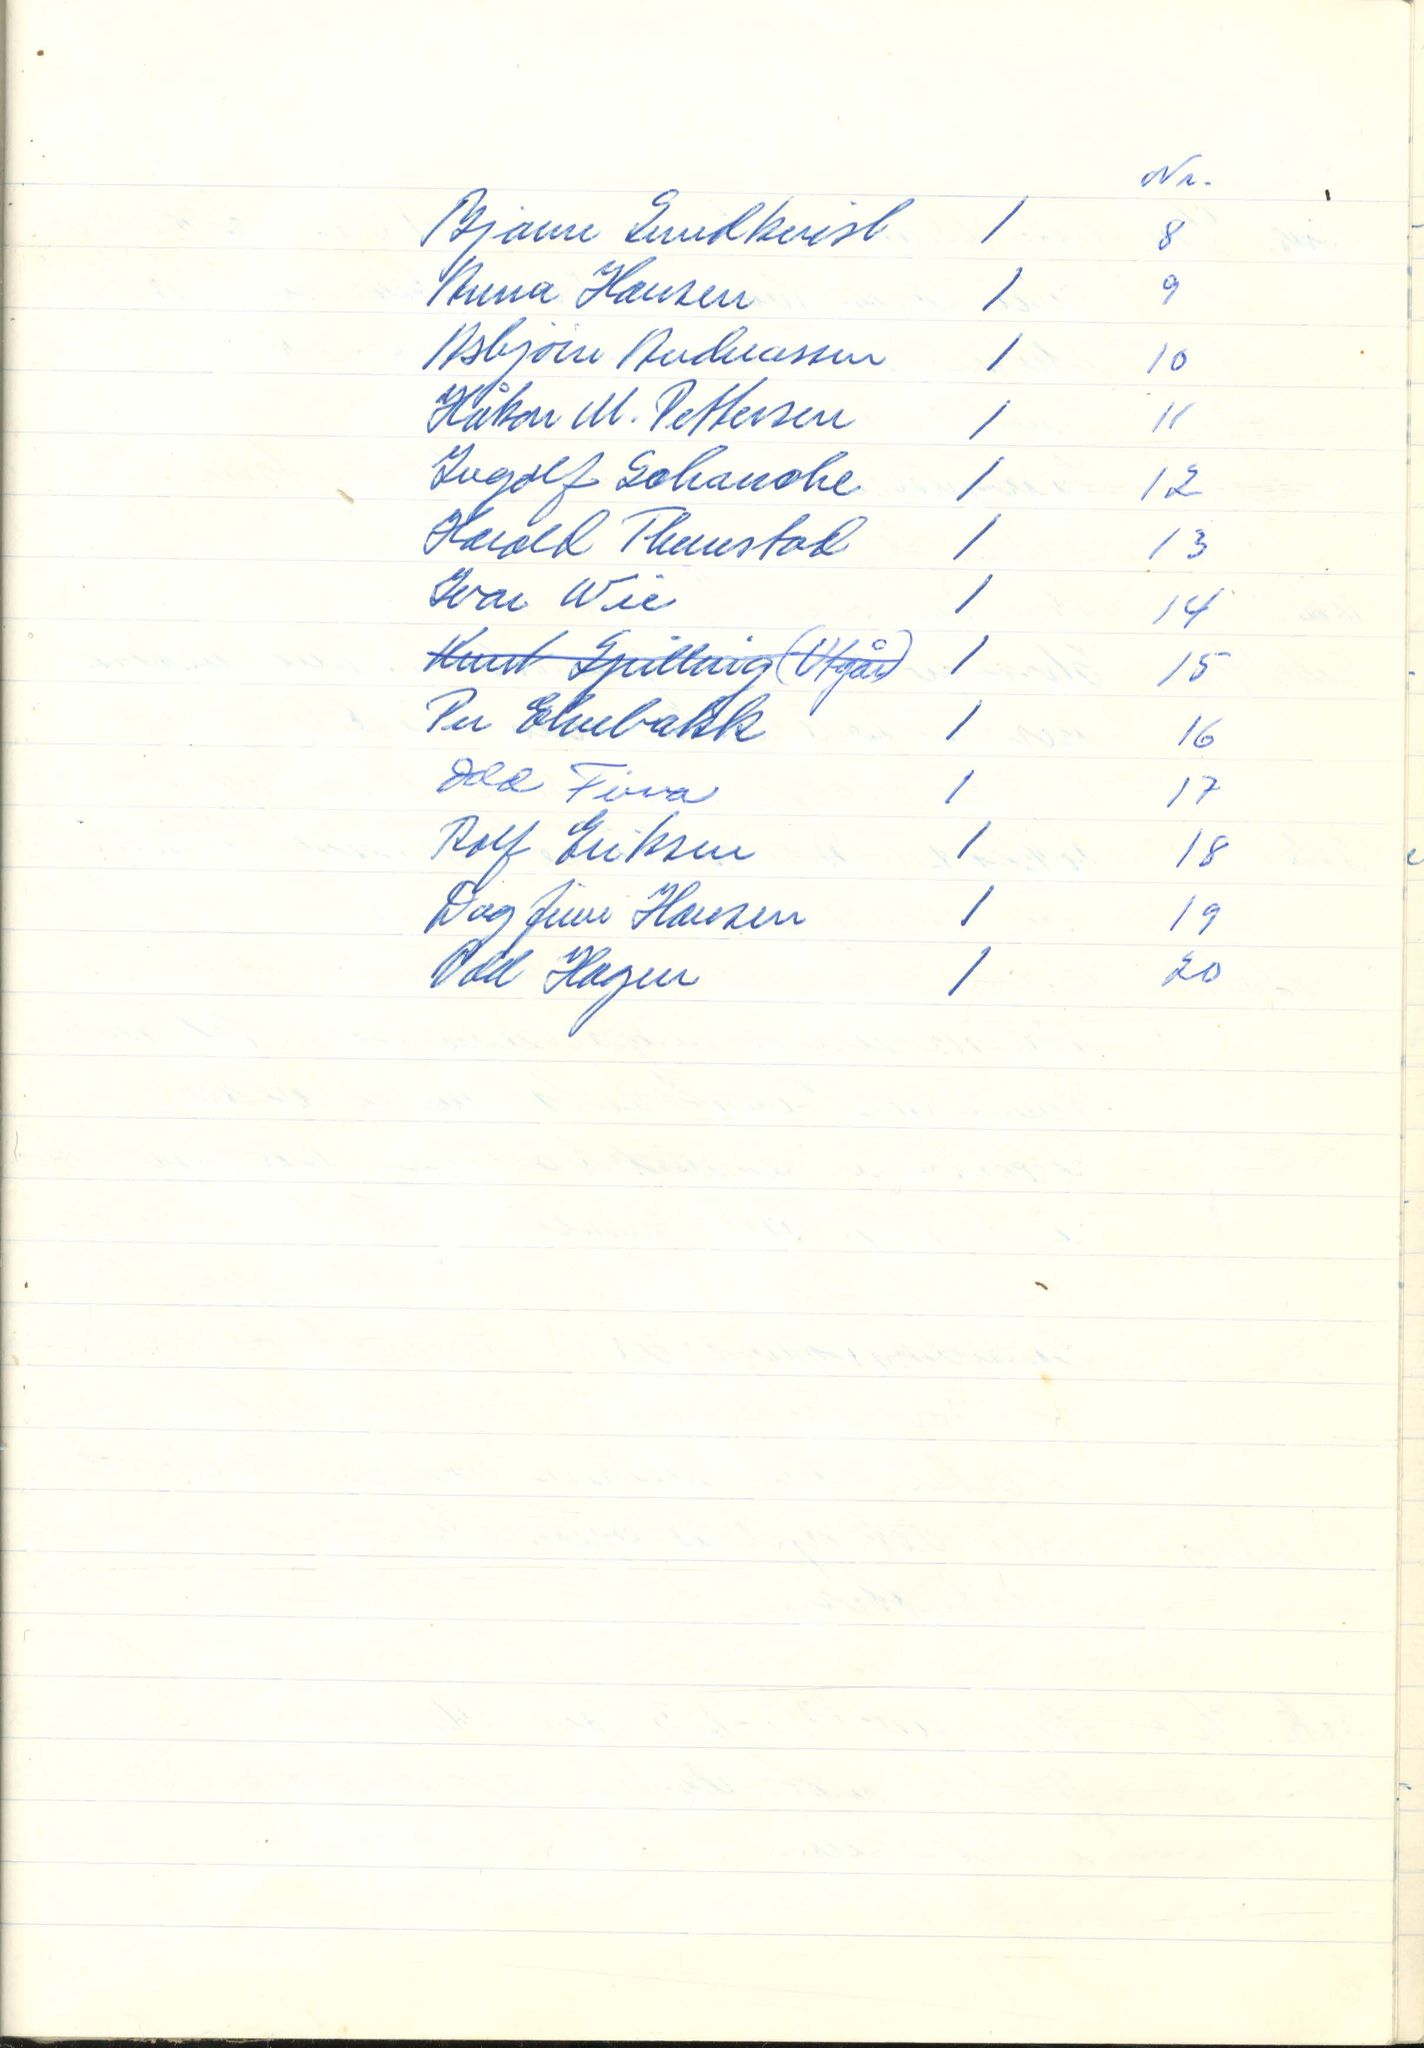 Nr.
Bjarne Lundkvist 1 8
Anna Hansen 1 9
Asbjörn Andreassen 1 10
Håkon M. Pettersen 1 11
Ingolf Schanche 1 12
Harald Thunstad 1 13
Ivar Wie 1 14
Knut Spilling (Utgår) 1 15
Per Elvebakk 1 16
Odd Fiva 1 17
Rolf Eriksen 1 18
Dagfinn Hansen 1 19
Odd Hagen 1 20